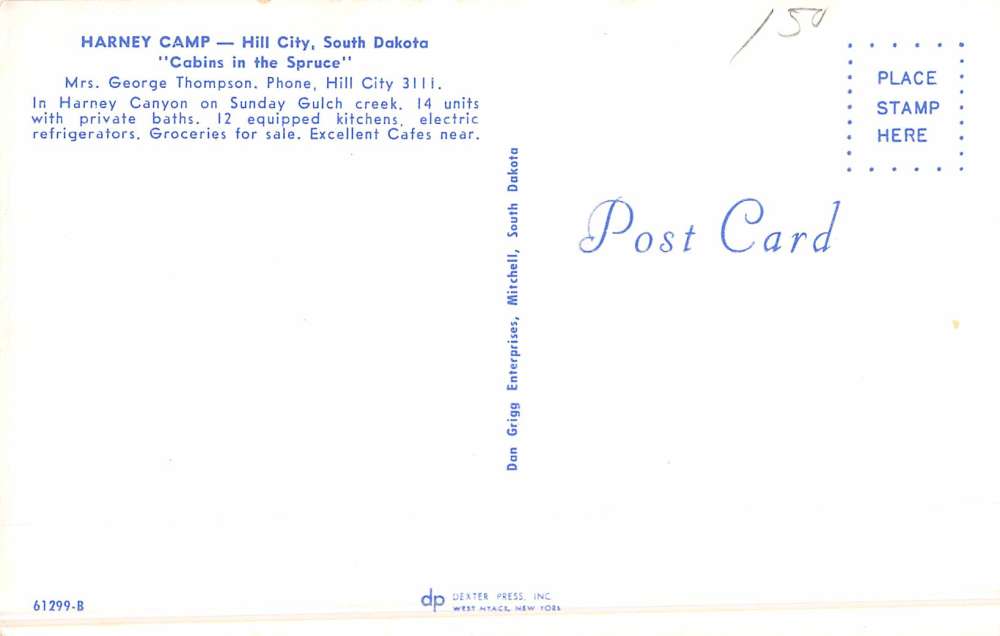 HARNEY CAMP — Hill City, South Dakota
"Cabins in the Spruce"
Mrs. George Thompson. Phone, Hill City 3111.
In Harney Canyon on Sunday Gulch creek. 14 units
with private baths. 12 equipped kitchens, electric
refrigerators. Groceries for sale. Excellent Cafes near.
150
PLACE
STAMP
HERE
Post Card
Dan Grigg Enterprises, Mitchell, South Dakota
61299-B
dp DEXTER PRESS, INC.
WEST NYACK, NEW YORK